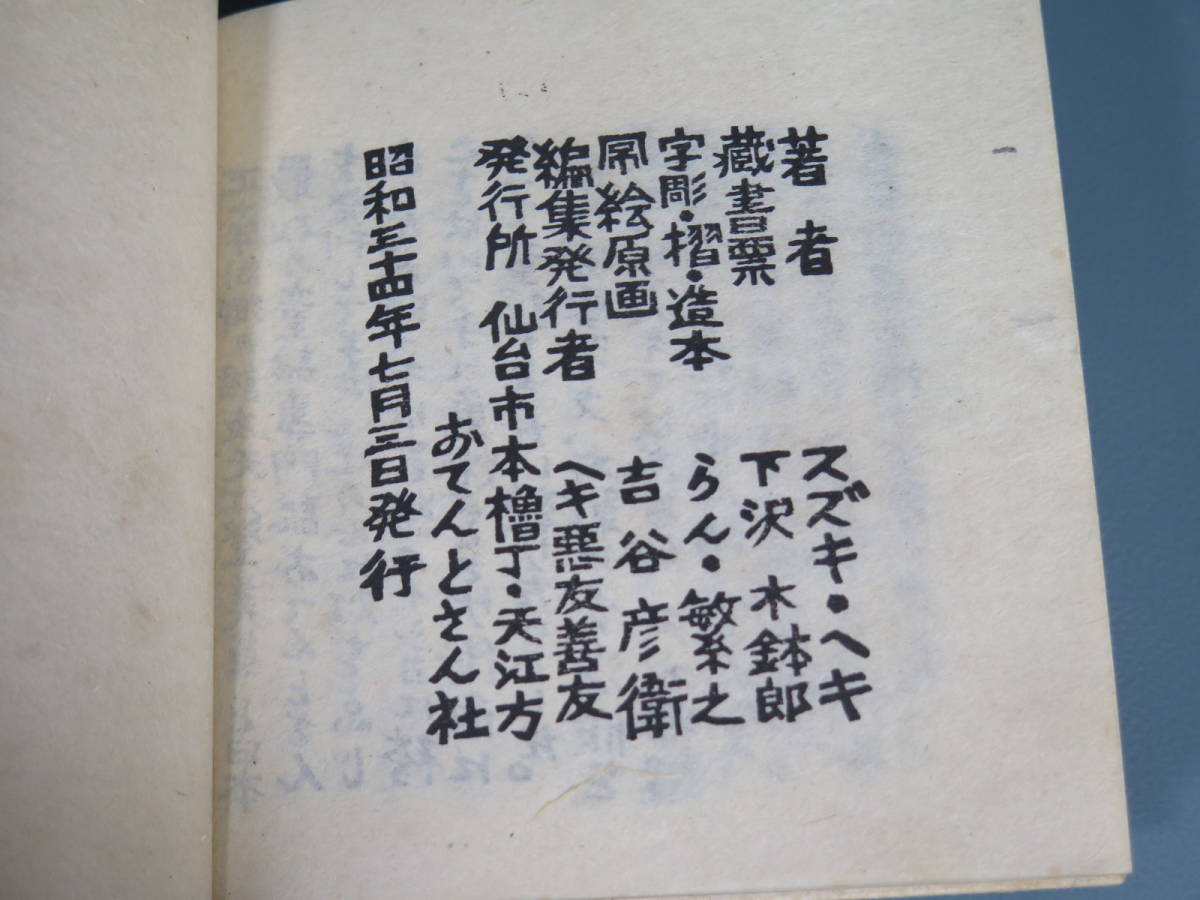 著者 スズキ・ヘキ
蔵書票 下沢木鉢郎
字彫・摺・造本 らん・繁之
凧絵原画 吉谷彦衛
編集発行者 ヘキ悪友善友
発行所 仙台市本櫓丁・天江方
おてんとさん社
昭和三十四年七月三日発行